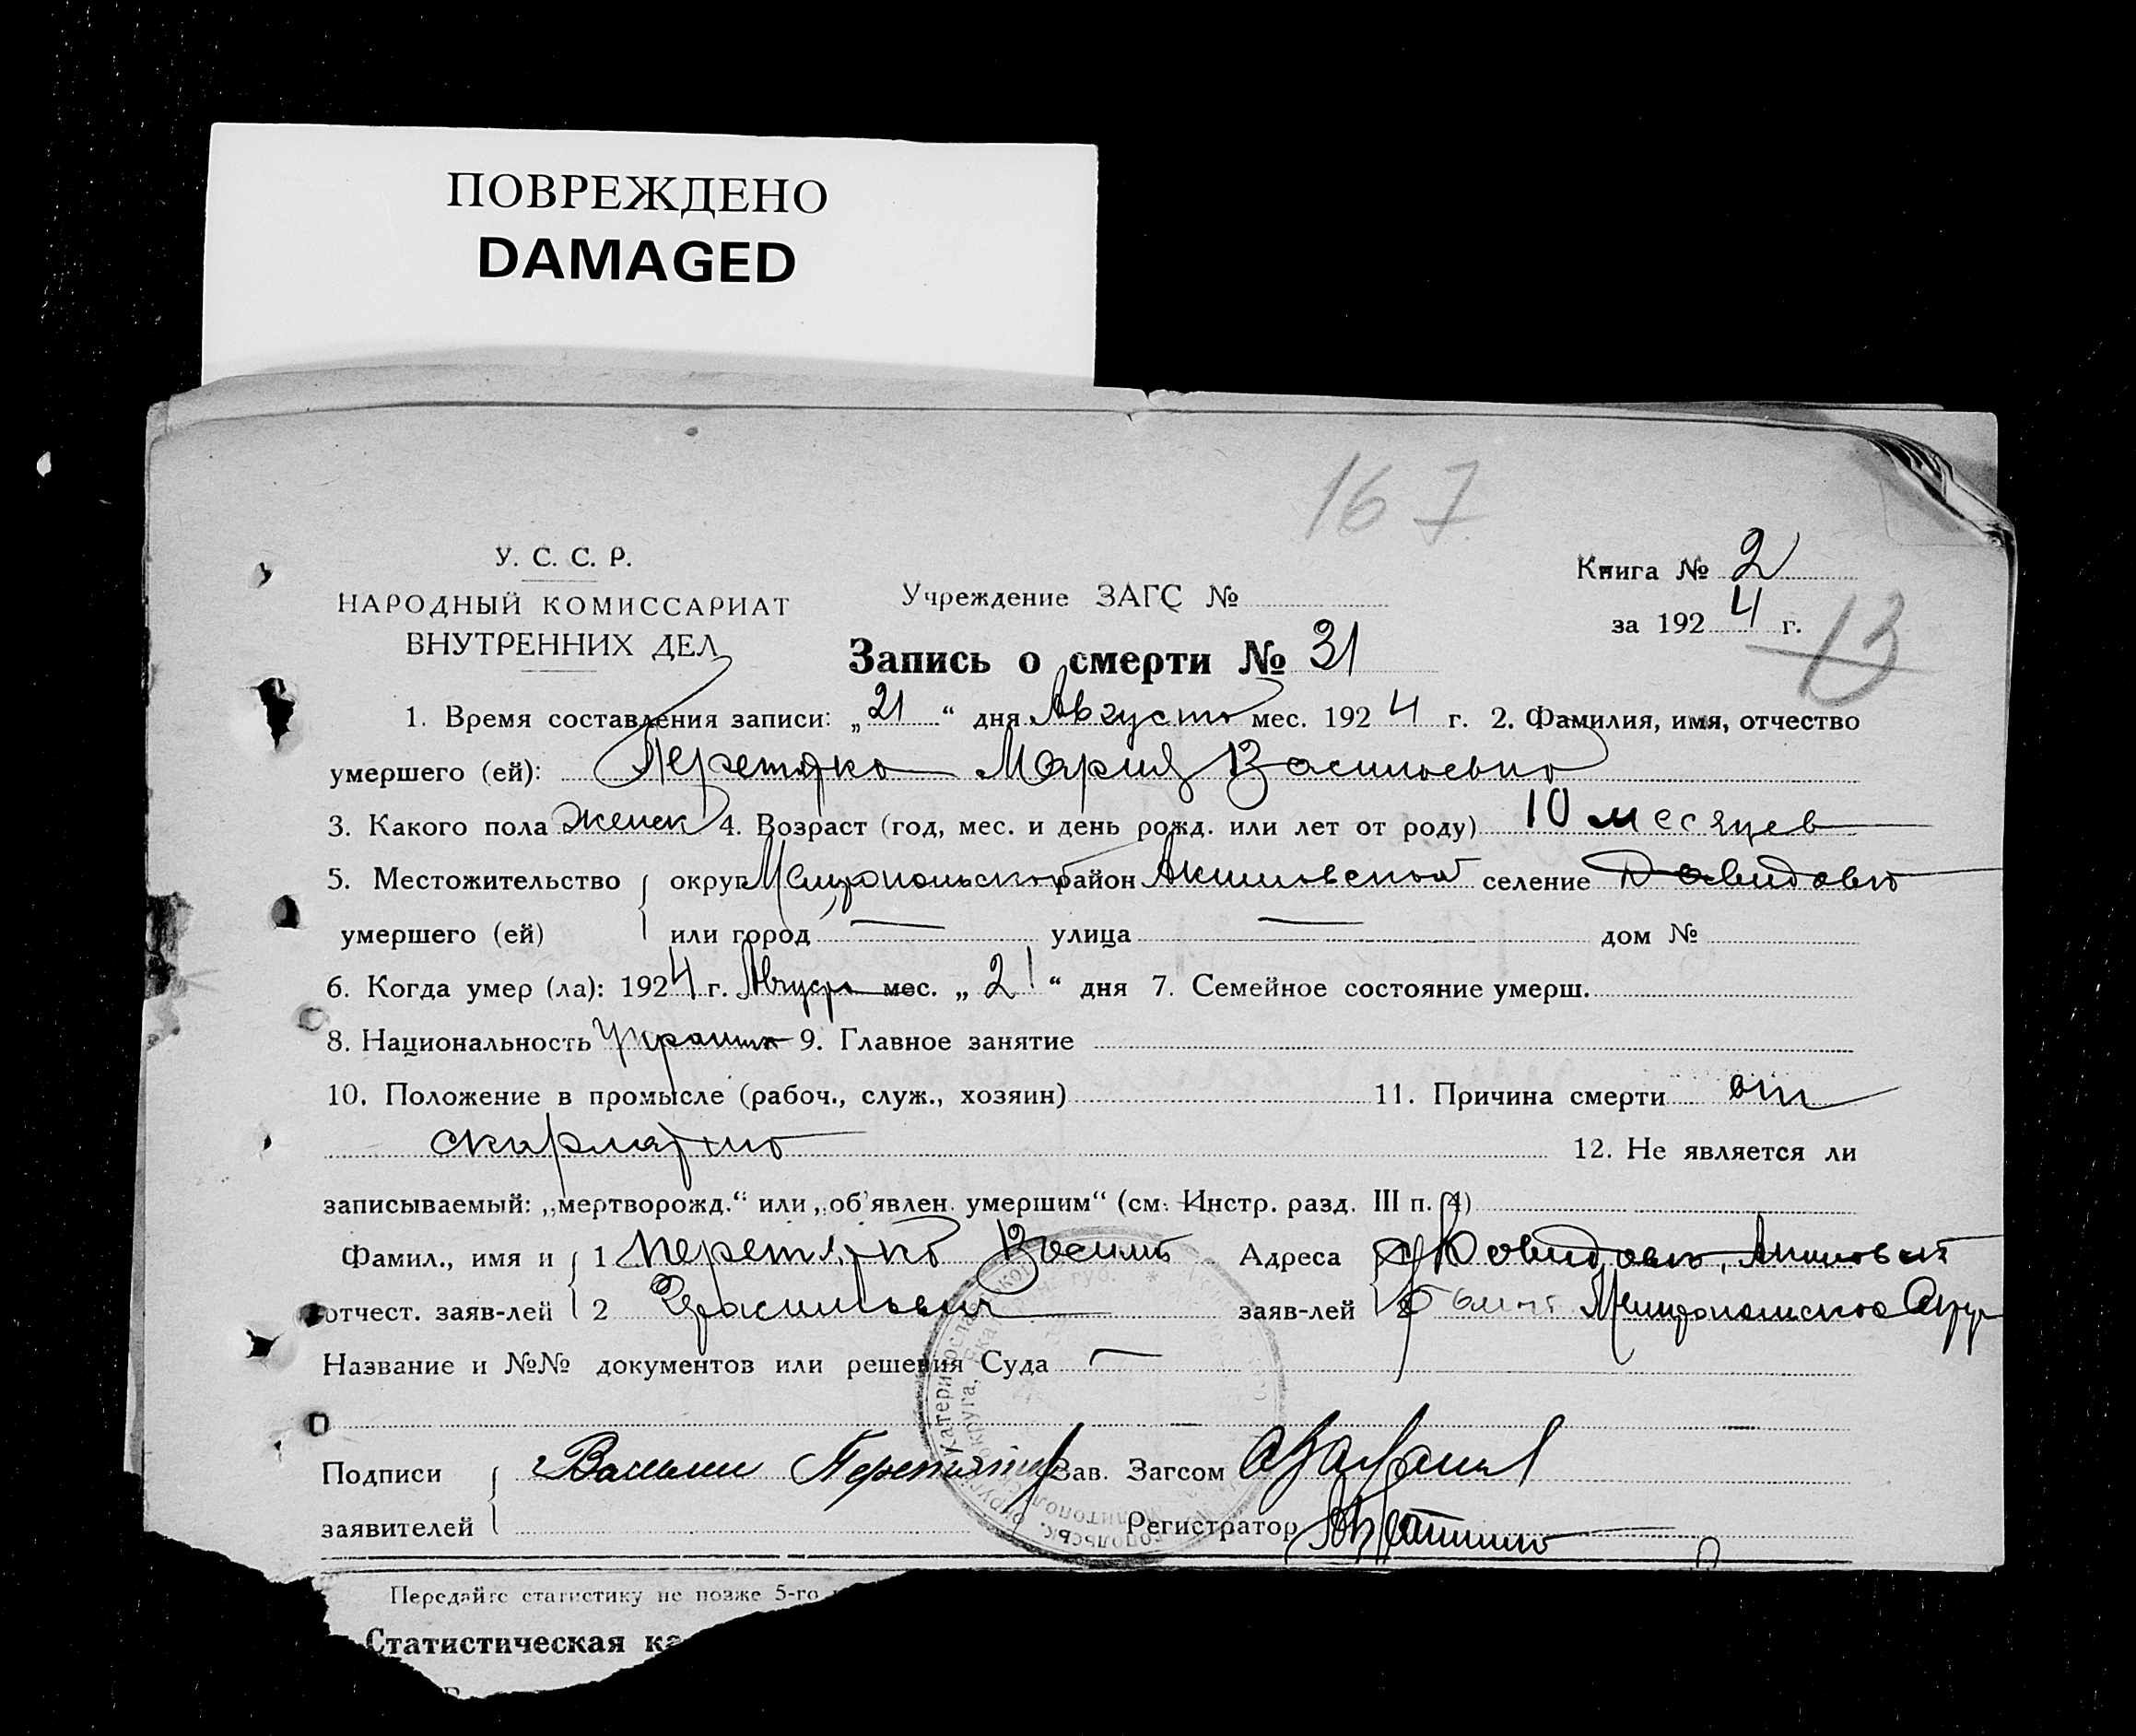 ПОВРЕЖДЕНО
DAMAGED
167
У. С. С. Р.
НАРОДНЫЙ КОМИССАРИАТ
ВНУТРЕННИХ ДЕЛ
Учреждение ЗАГС №
Книга № 2
за 1924 г.
13
Запись о смерти № 31
1. Время составления записи: „21“ дня Августа мес. 1924 г. 2. Фамилия, имя, отчество
умершего (ей): Перетятко Мария Васильевна
3. Какого пола женск 4. Возраст (год, мес. и день рожд. или лет от роду) 10 месяцев
5. Местожительство округ Мелитопольский район Акимовской селение Давидовка
умершего (ей) или город — улица — дом №
6. Когда умер (ла): 1924 г. Августа мес. „21“ дня 7. Семейное состояние умерш.
8. Национальность Украинка 9. Главное занятие
10. Положение в промысле (рабоч., служ., хозяин) 11. Причина смерти от
скарлатины 12. Не является ли
записываемый: „мертворожд.“ или „об'явлен. умершим“ (см. Инстр. разд. III п. 4)
Фамил., имя и 1 Перетятко Василь Адреса Давидовка, Акимовск
отчест. заяв-лей 2 заяв-лей 2 Мелитопольского Округ
Название и №№ документов или решения Суда —
Подписи Василий Перетятко Зав. Загсом
заявителей Регистратор
Передайте статистику не позже 5-го
Статистическая ка